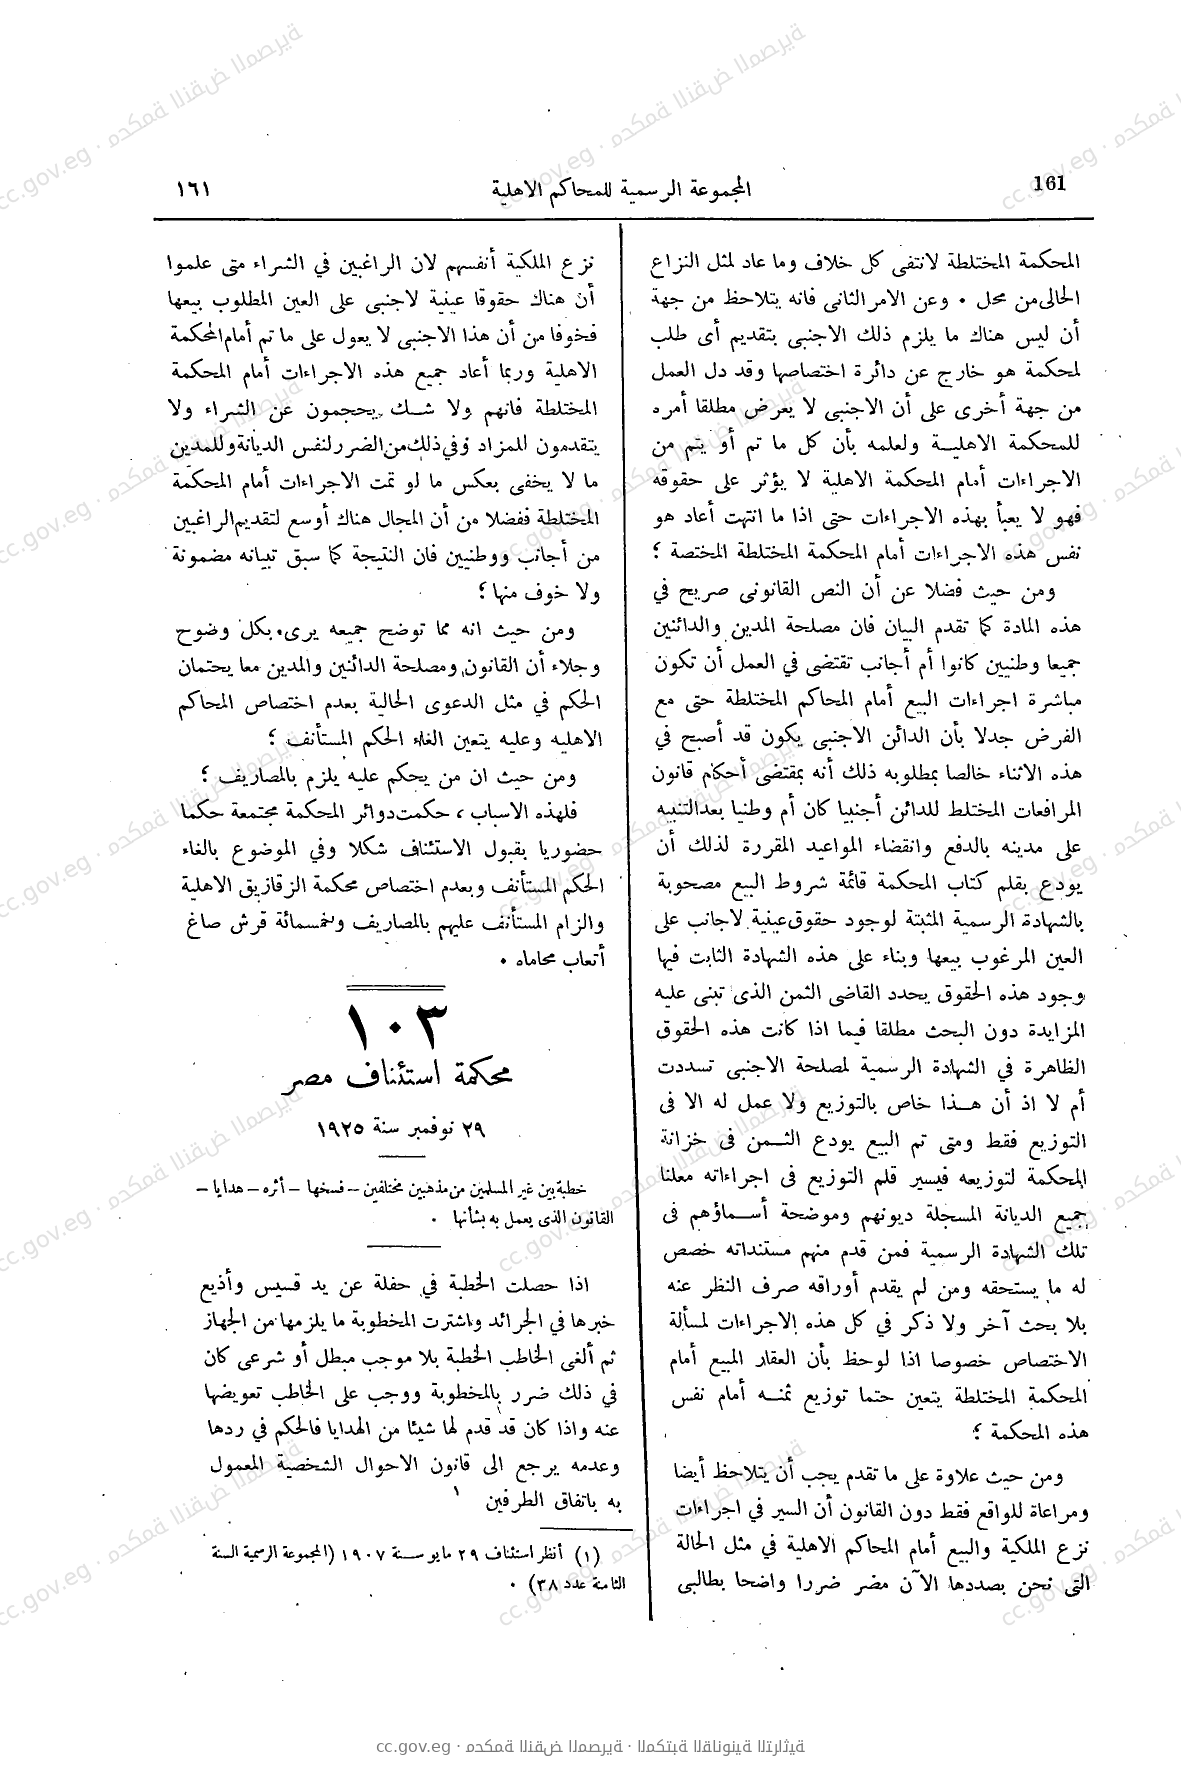 161
المجموعة الرسمية للمحاكم الاهلية
١٦١
المحكمة المختلطة لانتفى كل خلاف وما عاد لمثل النزاع
الحالى من محل ٠ وعن الامر الثانى فانه يتلاحظ من جهة
أن ليس هناك ما يلزم ذلك الاجنبى بتقديم أى طلب
لمحكمة هو خارج عن دائرة اختصاصها وقد دل العمل
من جهة أخرى على أن الاجنبى لا يعرض مطلقا أمره
للمحكمة الاهلية ولعلمه بأن كل ما تم أو يتم من
الاجراءات أمام المحكمة الاهلية لا يؤثر على حقوقه
فهو لا يعبأ بهذه الاجراءات حتى اذا ما انتهت أعاد هو
نفس هذه الاجراءات أمام المحكمة المختلطة المختصة ؛
ومن حيث فضلا عن أن النص القانونى صريح في
هذه المادة كما تقدم البيان فان مصلحة المدين والدائنين
جميعا وطنيين كانوا أم أجانب تقتضى في العمل أن تكون
مباشرة اجراءات البيع أمام المحاكم المختلطة حتى مع
الفرض جدلا بأن الدائن الاجنبى يكون قد أصبح في
هذه الاثناء خالصا بمطلوبه ذلك أنه بمقتضى أحكام قانون
المرافعات المختلط للدائن أجنبيا كان أم وطنيا بعد التنبيه
على مدينه بالدفع وانقضاء المواعيد المقررة لذلك أن
يودع بقلم كتاب المحكمة قائمة شروط البيع مصحوبة
بالشهادة الرسمية المثبتة لوجود حقوق عينية لاجانب على
العين المرغوب بيعها وبناء على هذه الشهادة الثابت فيها
وجود هذه الحقوق يحدد القاضى الثمن الذى تبنى عليه
المزايدة دون البحث مطلقا فيما اذا كانت هذه الحقوق
الظاهرة في الشهادة الرسمية لمصلحة الاجنبى تسددت
أم لا اذ أن هذا خاص بالتوزيع ولا عمل له الا فى
التوزيع فقط ومتى تم البيع يودع الثمن فى خزانة
المحكمة لتوزيعه فيسير قلم التوزيع فى اجراءاته معلنا
جميع الديانة المسجلة ديونهم وموضحة أسماؤهم فى
تلك الشهادة الرسمية فمن قدم منهم مستنداته خصص
له ما يستحقه ومن لم يقدم أوراقه صرف النظر عنه
بلا بحث آخر ولا ذكر في كل هذه الاجراءات لمسألة
الاختصاص خصوصا اذا لوحظ بأن العقار المبيع أمام
المحكمة المختلطة يتعين حتما توزيع ثمنه أمام نفس
هذه المحكمة ؛
ومن حيث علاوة على ما تقدم يجب أن يتلاحظ أيضا
ومراعاة للواقع فقط دون القانون أن السير في اجراءات
نزع الملكية والبيع أمام المحاكم الاهلية في مثل الحالة
التى نحن بصددها الآن مضر ضررا واضحا بطالبى
نزع الملكية أنفسهم لان الراغبين في الشراء متى علموا
أن هناك حقوقا عينية لاجنبى على العين المطلوب بيعها
فخوفا من أن هذا الاجنبى لا يعول على ما تم أمام المحكمة
الاهلية وربما أعاد جميع هذه الاجراءات أمام المحكمة
المختلطة فانهم ولا شك يحجمون عن الشراء ولا
يتقدمون للمزاد وفي ذلك من الضرر لنفس الديانة وللمدين
ما لا يخفى بعكس ما لو تمت الاجراءات أمام المحكمة
المختلطة ففضلا من أن المجال هناك أوسع لتقديم الراغبين
من أجانب ووطنيين فان النتيجة كما سبق تبيانه مضمونة
ولا خوف منها ؛
ومن حيث انه مما توضح جميعه يرى بكل وضوح
وجلاء أن القانون ومصلحة الدائنين والمدين معا يحتمان
الحكم في مثل الدعوى الحالية بعدم اختصاص المحاكم
الاهليه وعليه يتعين الغاء الحكم المستأنف ؛
ومن حيث ان من يحكم عليه يلزم بالمصاريف ؛
فلهذه الاسباب ، حكمت دوائر المحكمة مجتمعة حكما
حضوريا بقبول الاستئناف شكلا وفي الموضوع بالغاء
الحكم المستأنف وبعدم اختصاص محكمة الزقازيق الاهلية
والزام المستأنف عليهم بالمصاريف وخمسمائة قرش صاغ
أتعاب محاماه ٠
١٠٣
محكمة استئناف مصر
٢٩ نوفمبر سنة ١٩٢٥
خطبة بين غير المسلمين من مذهبين مختلفين – فسخها – أثره – هدايا –
القانون الذى يعمل به بشأنها ٠
اذا حصلت الخطبة في حفلة عن يد قسيس وأذيع
خبرها في الجرائد واشترت المخطوبة ما يلزمها من الجهاز
ثم ألغى الخاطب الخطبة بلا موجب مبطل أو شرعى كان
في ذلك ضرر بالمخطوبة ووجب على الخاطب تعويضها
عنه واذا كان قد قدم لها شيئا من الهدايا فالحكم في ردها
وعدمه يرجع الى قانون الاحوال الشخصية المعمول
به باتفاق الطرفين ١
(١) أنظر استئناف ٢٩ مايو سنة ١٩٠٧ (المجموعة الرسمية السنة
الثامنة عدد ٣٨) ٠
cc.gov.eg · محكمة النقض المصرية · المكتبة القانونية التراثية